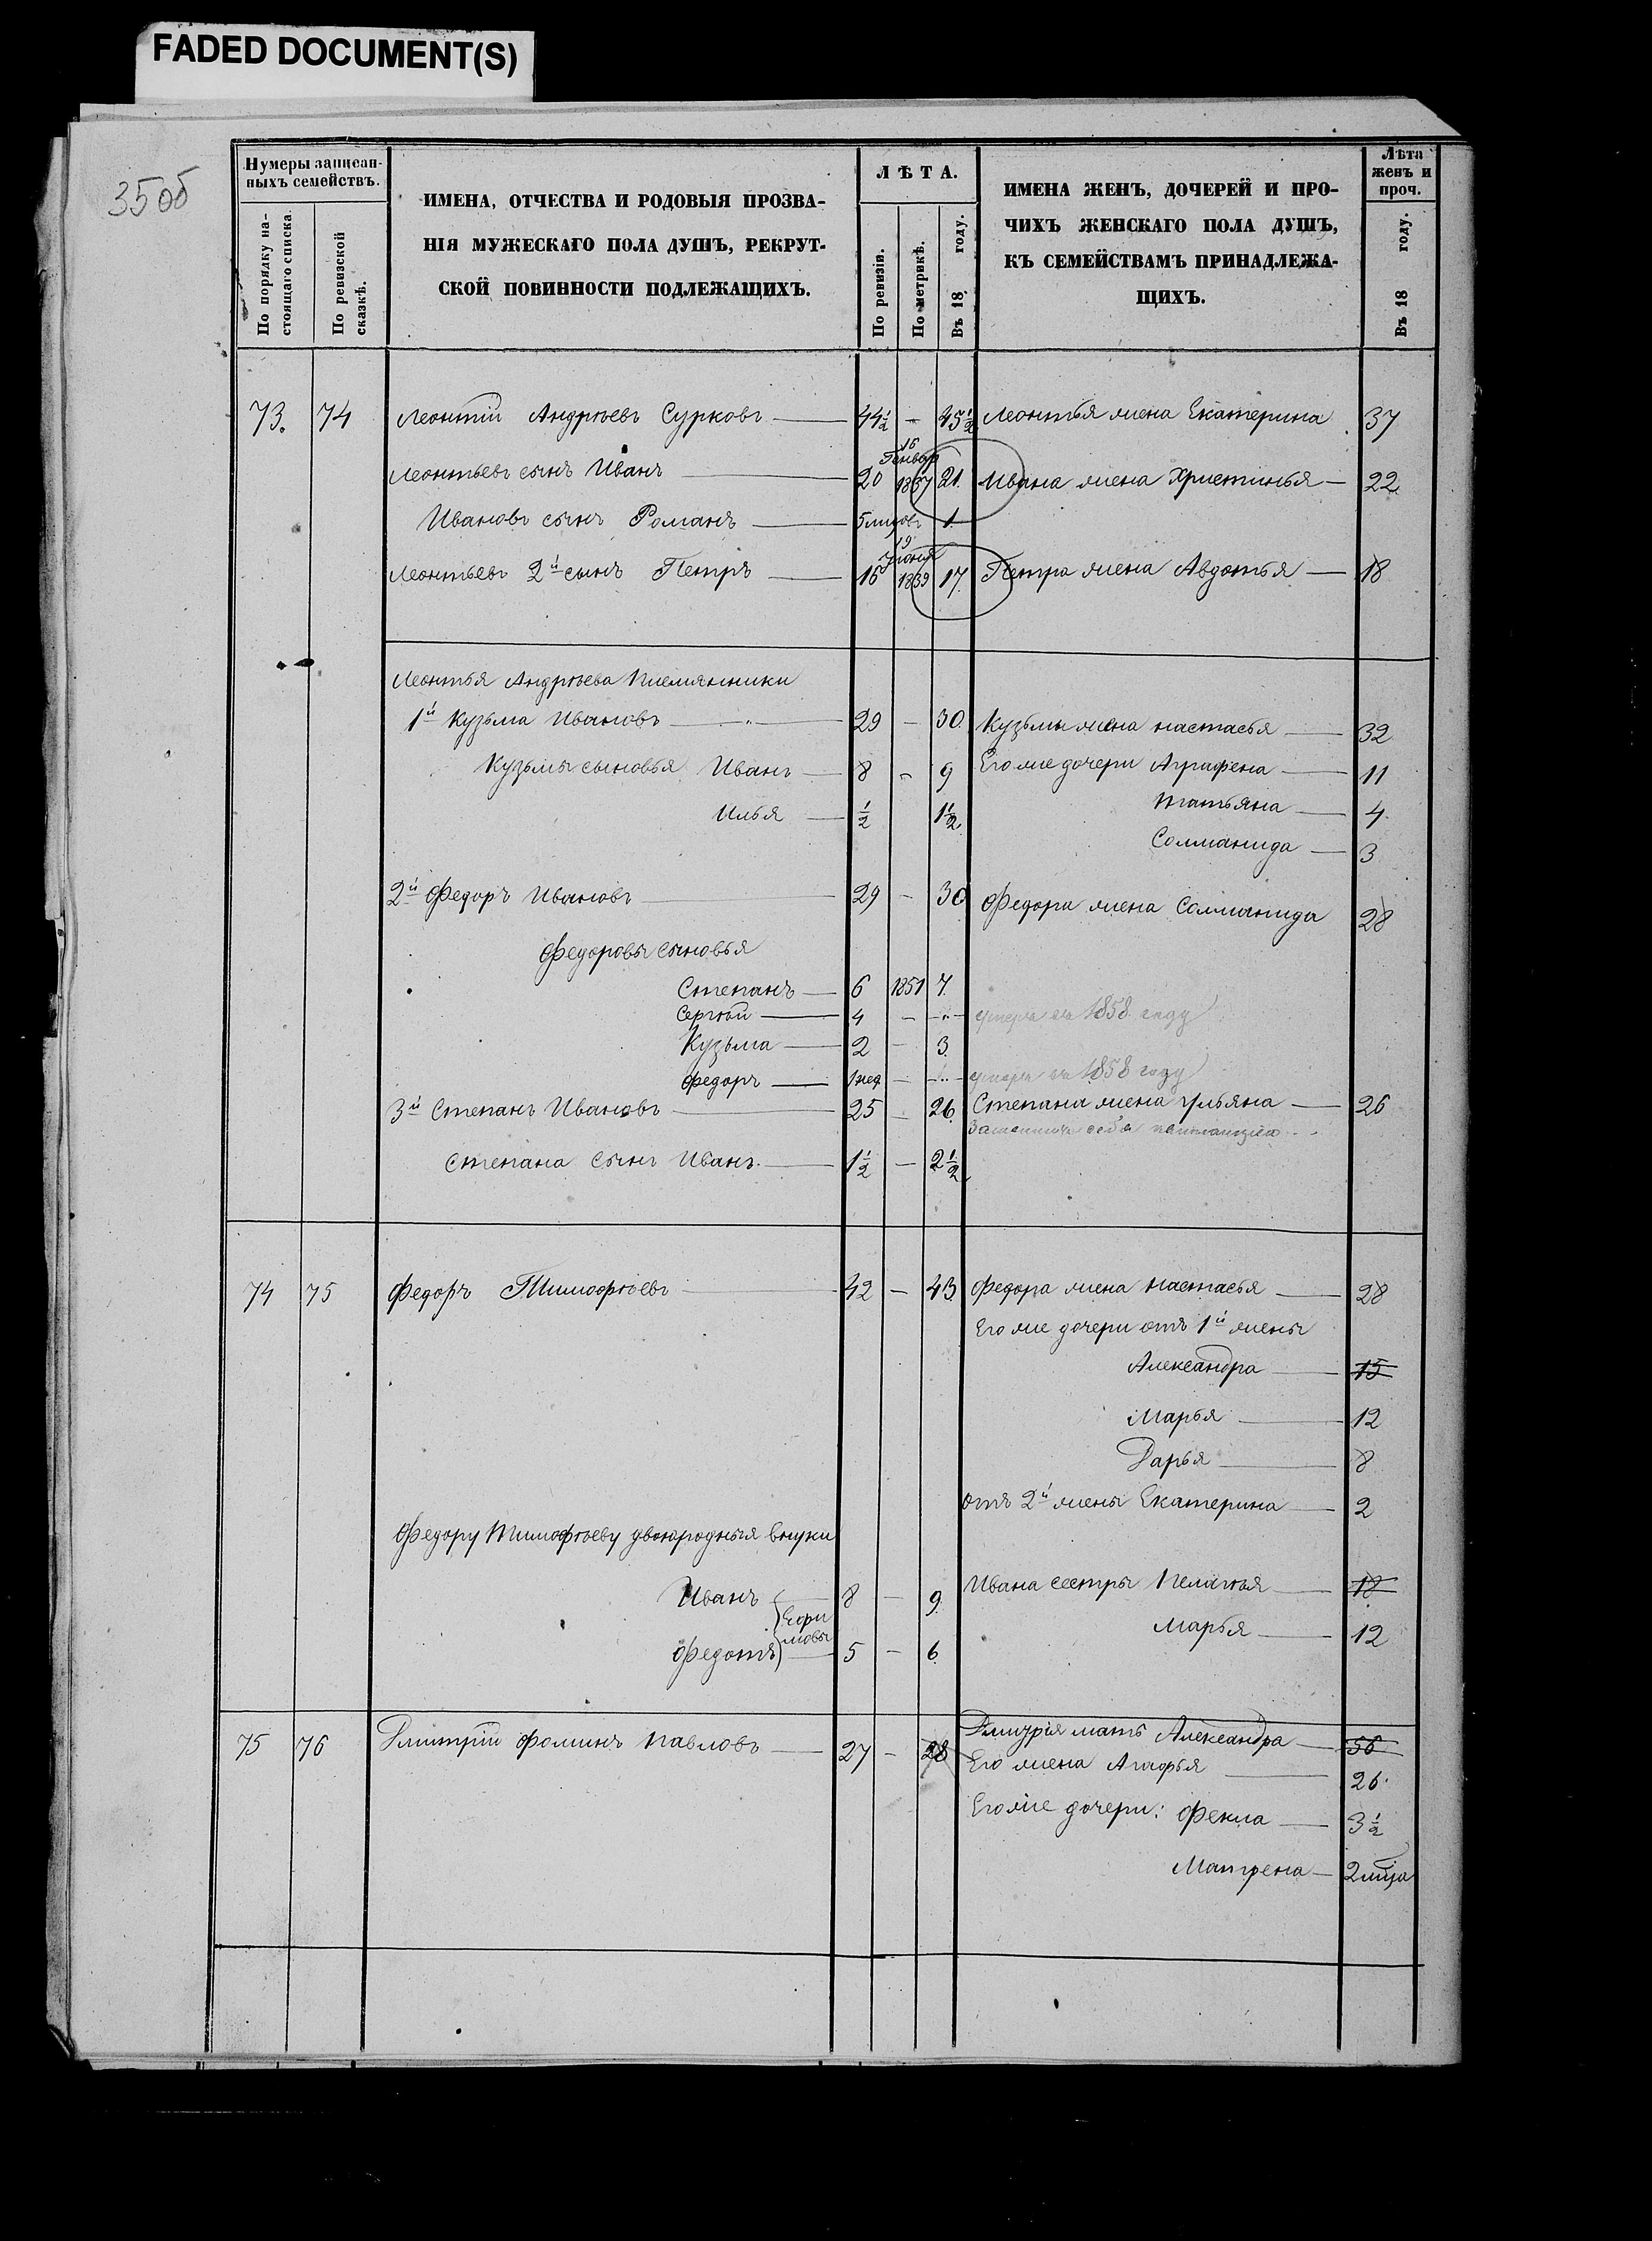 FADED DOCUMENT(S)
35об
Нумеры записан-
ныхъ семействъ.
По порядку на-
стоящаго списка.
По ревизской
сказкѣ.
ИМЕНА, ОТЧЕСТВА И РОДОВЫЯ ПРОЗВА-
НІЯ МУЖЕСКАГО ПОЛА ДУШЪ, РЕКРУТ-
СКОЙ ПОВИННОСТИ ПОДЛЕЖАЩИХЪ.
ЛѢТА.
По ревизіи.
По метрикѣ.
Въ 18 году.
ИМЕНА ЖЕНЪ, ДОЧЕРЕЙ И ПРО-
ЧИХЪ ЖЕНСКАГО ПОЛА ДУШЪ,
КЪ СЕМЕЙСТВАМЪ ПРИНАДЛЕЖА-
ЩИХЪ.
Лѣта
женъ и
проч.
Въ 18 году.
73. 74 Леонтій Андрѣевъ Сурковъ — 44½ — 45½ Леонтья жена Екатерина 37
16
Генвар
Леонтьевъ сынъ Иванъ — 20 1837 21. Ивана жена Христинья — 22
Ивановъ сынъ Романъ — 5 1.
19
Іюня
Леонтьевъ 2й сынъ Петръ — 16 1839 17. Петра жена Авдотья — 18
Леонтья Андрѣева Племянники
1й Кузьма Ивановъ — 29 — 30. Кузьмы жена Настасья — 32
Кузьмы сыновья Иванъ — 8 — 9 Его же дочери Аграфена — 11
Татьяна — 4
Илья — ½ 1½
Соломанида — 3
2й Федоръ Ивановъ — 29 — 30 Федора жена Соломанида 28
Федоровы сыновья
Степанъ — 6 1851 7.
Сергѣй — 4 — — умеръ въ 1858 году
Кузьма — 2 — 3.
Федоръ — 1 нед — — умеръ въ 1858 году
3й Степанъ Ивановъ — 25 — 26. Степана жена Ульяна — 26
себя
Степана сынъ Иванъ. — 1½ — 2½
74 75 Федоръ Тимофѣевъ — 42 — 43. Федора жена Настасья — 28
Его же дочери отъ 1й жены
Александра — 15
Марья — 12
Дарья — 8
отъ 2й жены Екатерина — 2
Федору Тимофѣеву двоюродныя внуки
Иванъ — 8 — 9. Ивана сестры Пелагея — 18
Марья — 12
Федотъ — 5 — 6.
75 76 Дмитрій Фоминъ Павловъ — 27 — 28 Дмитрія мать Александра — 56
Его жена Агафья — 26.
Его же дочери: Фекла — 3½
Матрена — 2 мѣся